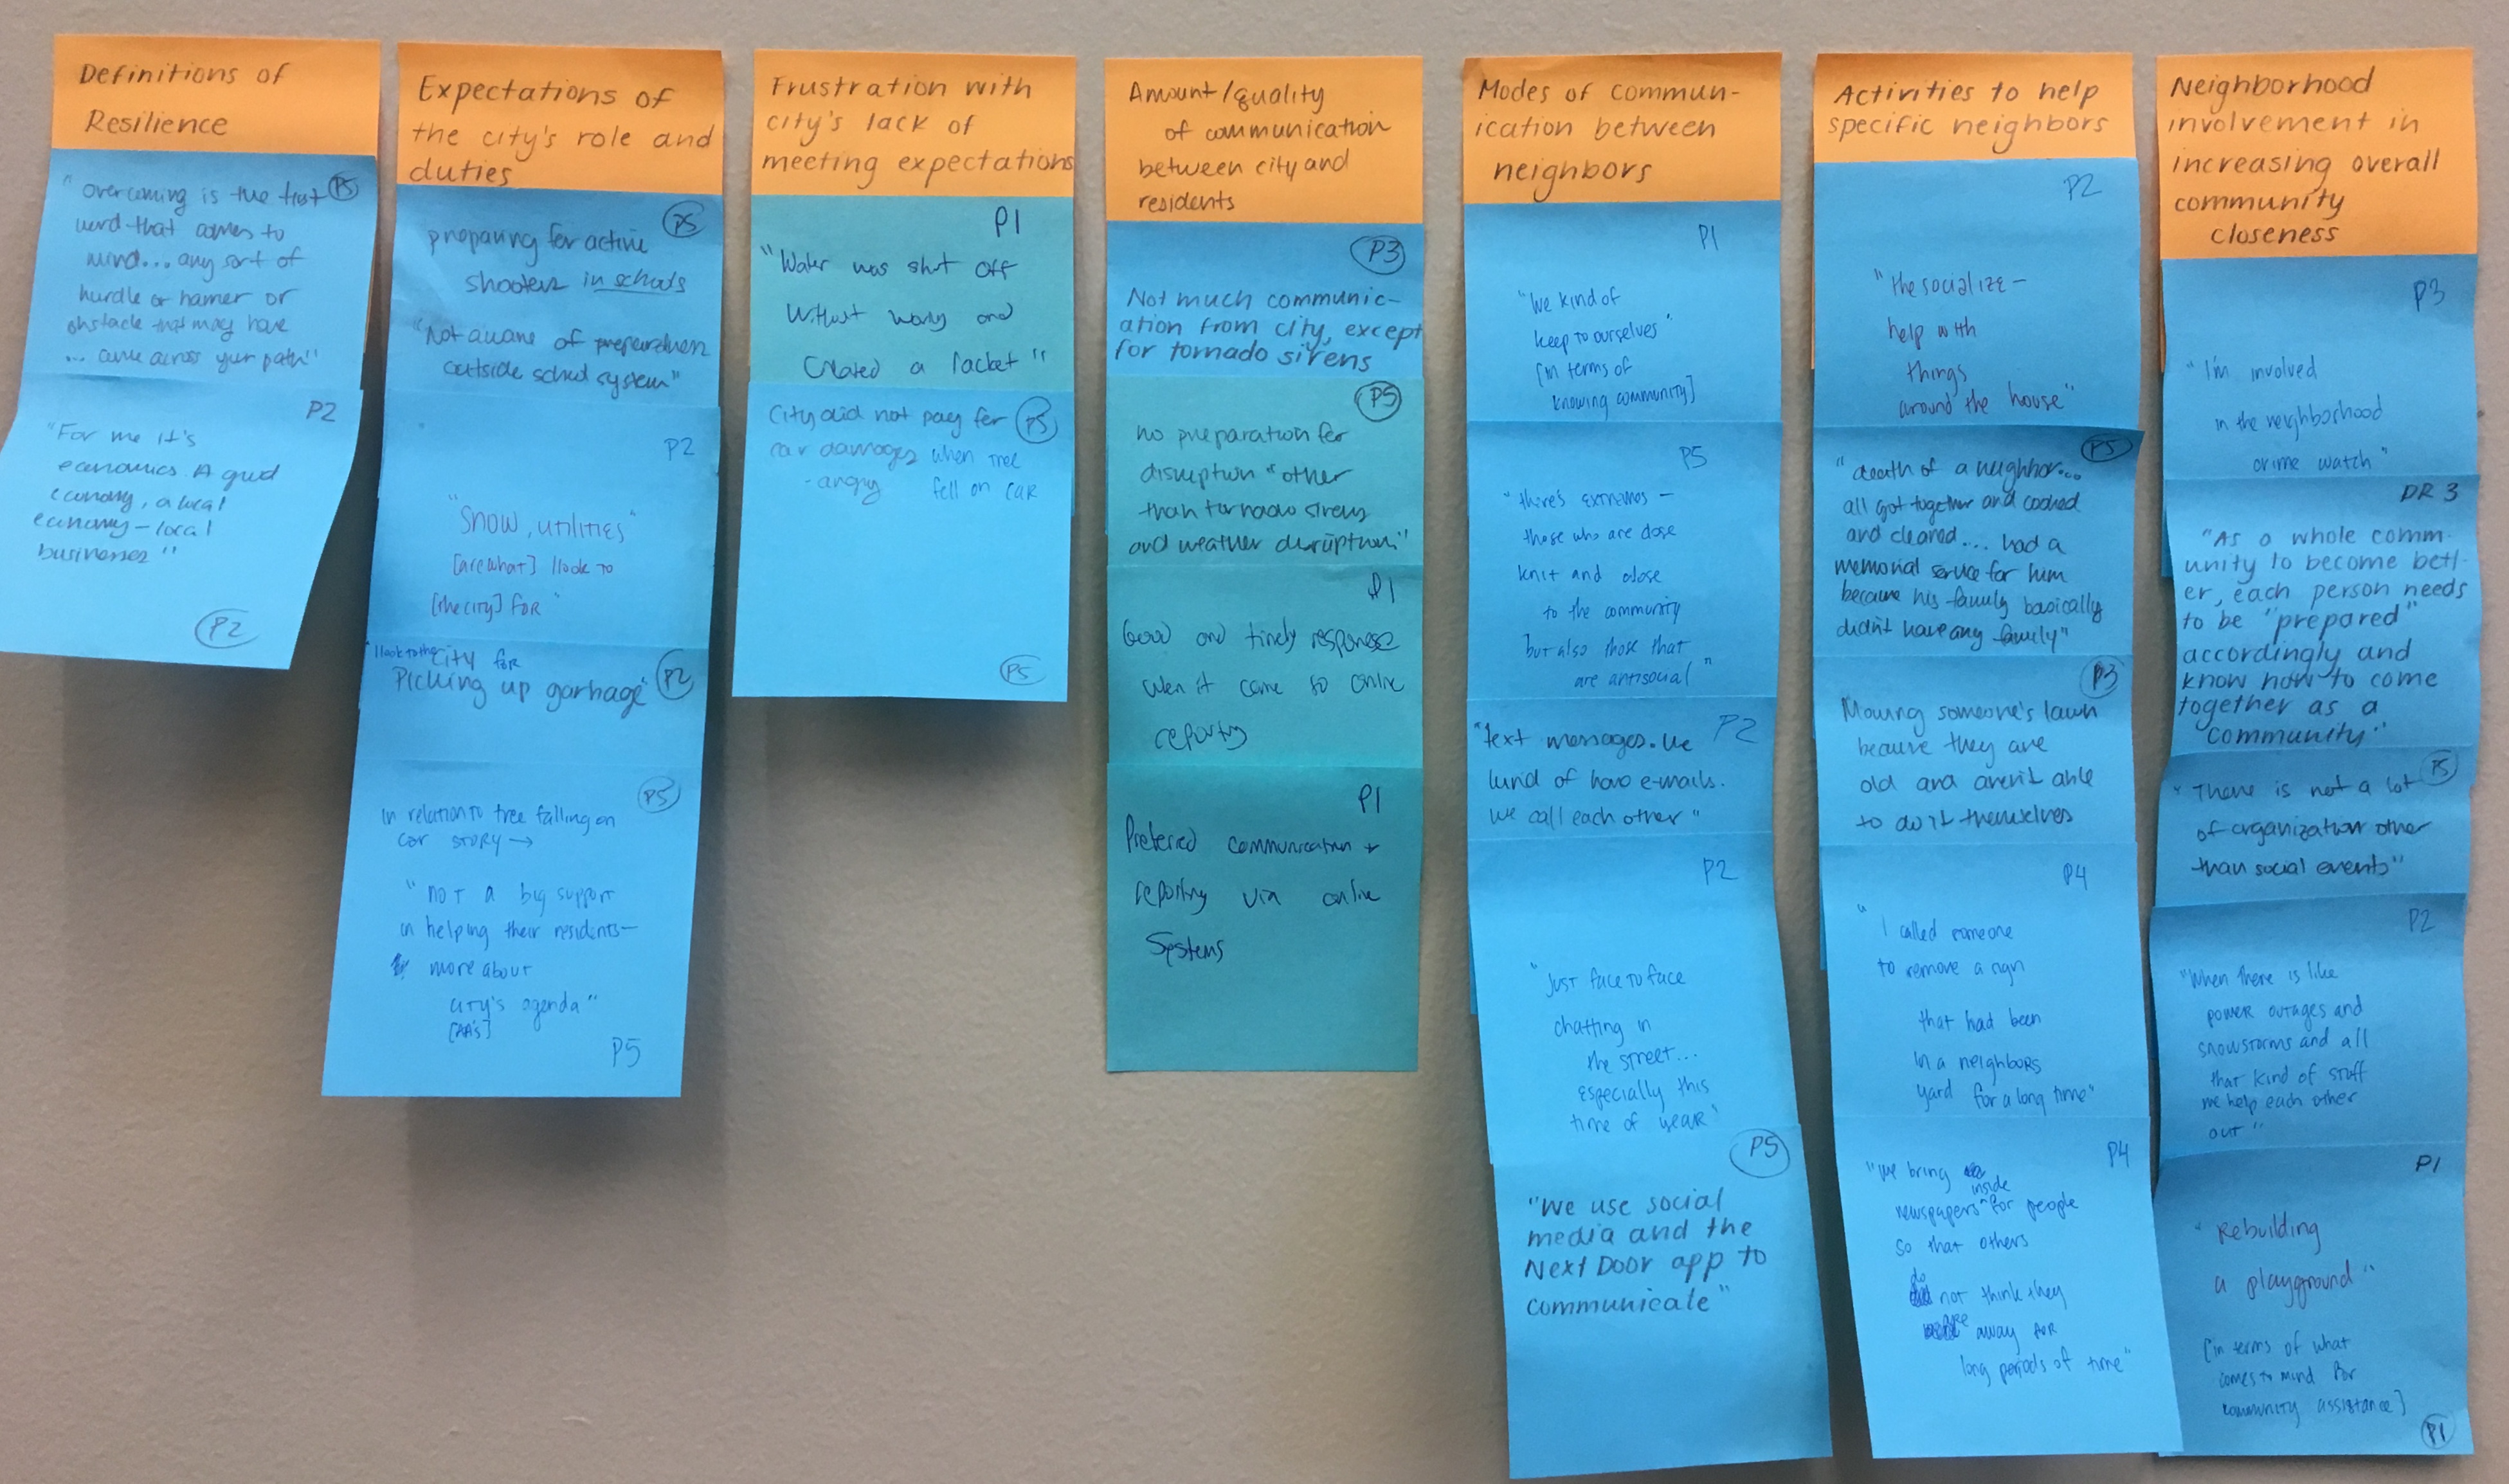 Definitions of
Resilience
P5
"overcoming is the first
word that comes to
mind... any sort of
hurdle or barrier or
obstacle that may have
... came across your path"
P2
"For me it's
economics. A good
economy, a local
economy – local
businesses"
P2
Expectations of
the city's role and
duties
P5
preparing for active
shooters in schools
"Not aware of preparation
outside school system"
P2
"Snow, utilities"
[are what] I look to
[the city] for"
"I look to the city for
Picking up garbage"
P2
P5
In relation to tree falling on
car story →
"not a big support
in helping their residents—
more about
city's agenda"
P5
Frustration with
city's lack of
meeting expectations
P1
"Water was shut off
without warning and
created a racket"
City did not pay for
P5
car damages when tree
- angry fell on car
P5
Amount/quality
of communication
between city and
residents
P3
Not much communic-
ation from city, except
for tornado sirens
P5
no preparation for
disruption "other
than tornado sirens
and weather disruptions"
P1
Good and timely response
when it came to online
reporting
P1
Preferred communication +
reporting via online
Systems
Modes of commun-
ication between
neighbors
P1
"We kind of
keep to ourselves"
[in terms of
knowing community]
P5
"there's extremes —
those who are close
knit and close
to the community
but also those that
are antisocial"
P2
"text messages. We
kind of have e-mails.
we call each other"
P2
"Just face to face
chatting in
the street...
especially this
time of year"
P5
"We use social
media and the
Next Door app to
communicate"
Activities to help
specific neighbors
P2
"the socialize —
help with
things
around the house"
P5
"death of a neighbor...
all got together and cooked
and cleaned.... had a
memorial service for him
because his family basically
didn't have any family"
P3
Mowing someone's lawn
because they are
old and aren't able
to do it themselves
P4
"I called someone
to remove a sign
that had been
in a neighbors
yard for a long time"
P4
"We bring
inside
newspapers ^ for people
so that others
do
not think they
are away for
long periods of time"
Neighborhood
involvement in
increasing overall
community
closeness
P3
"I'm involved
in the neighborhood
crime watch"
DR 3
"As a whole comm-
unity to become bett-
er, each person needs
to be "prepared"
accordingly and
know how to come
together as a
community."
P5
"There is not a lot
of organization other
than social events"
P2
"When there is like
power outages and
snowstorms and all
that kind of stuff
we help each other
out"
P1
"Rebuilding
a playground"
[in terms of what
comes to mind for
community assistance]
P1